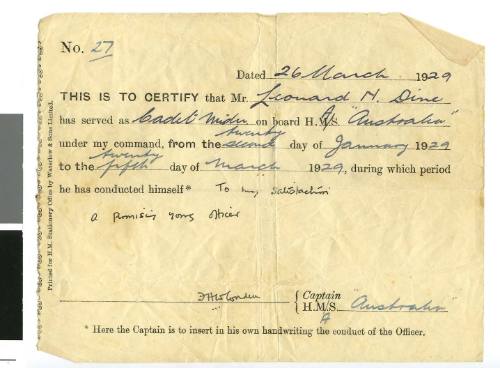 No. 27
Dated 26 March 1929
THIS IS TO CERTIFY that Mr. Leonard N. Dine
has served as Cadet Midn on board H.M.A.S. "Australia"
twenty
under my command, from the second day of January 1929
twenty
to the fifth day of March 1929, during which period
he has conducted himself* To my satisfaction
a promising young officer
Captain
H.M.A.S. "Australia"
* Here the Captain is to insert in his own handwriting the conduct of the Officer.
Printed for H.M. Stationery Office by Waterlow & Sons Limited.